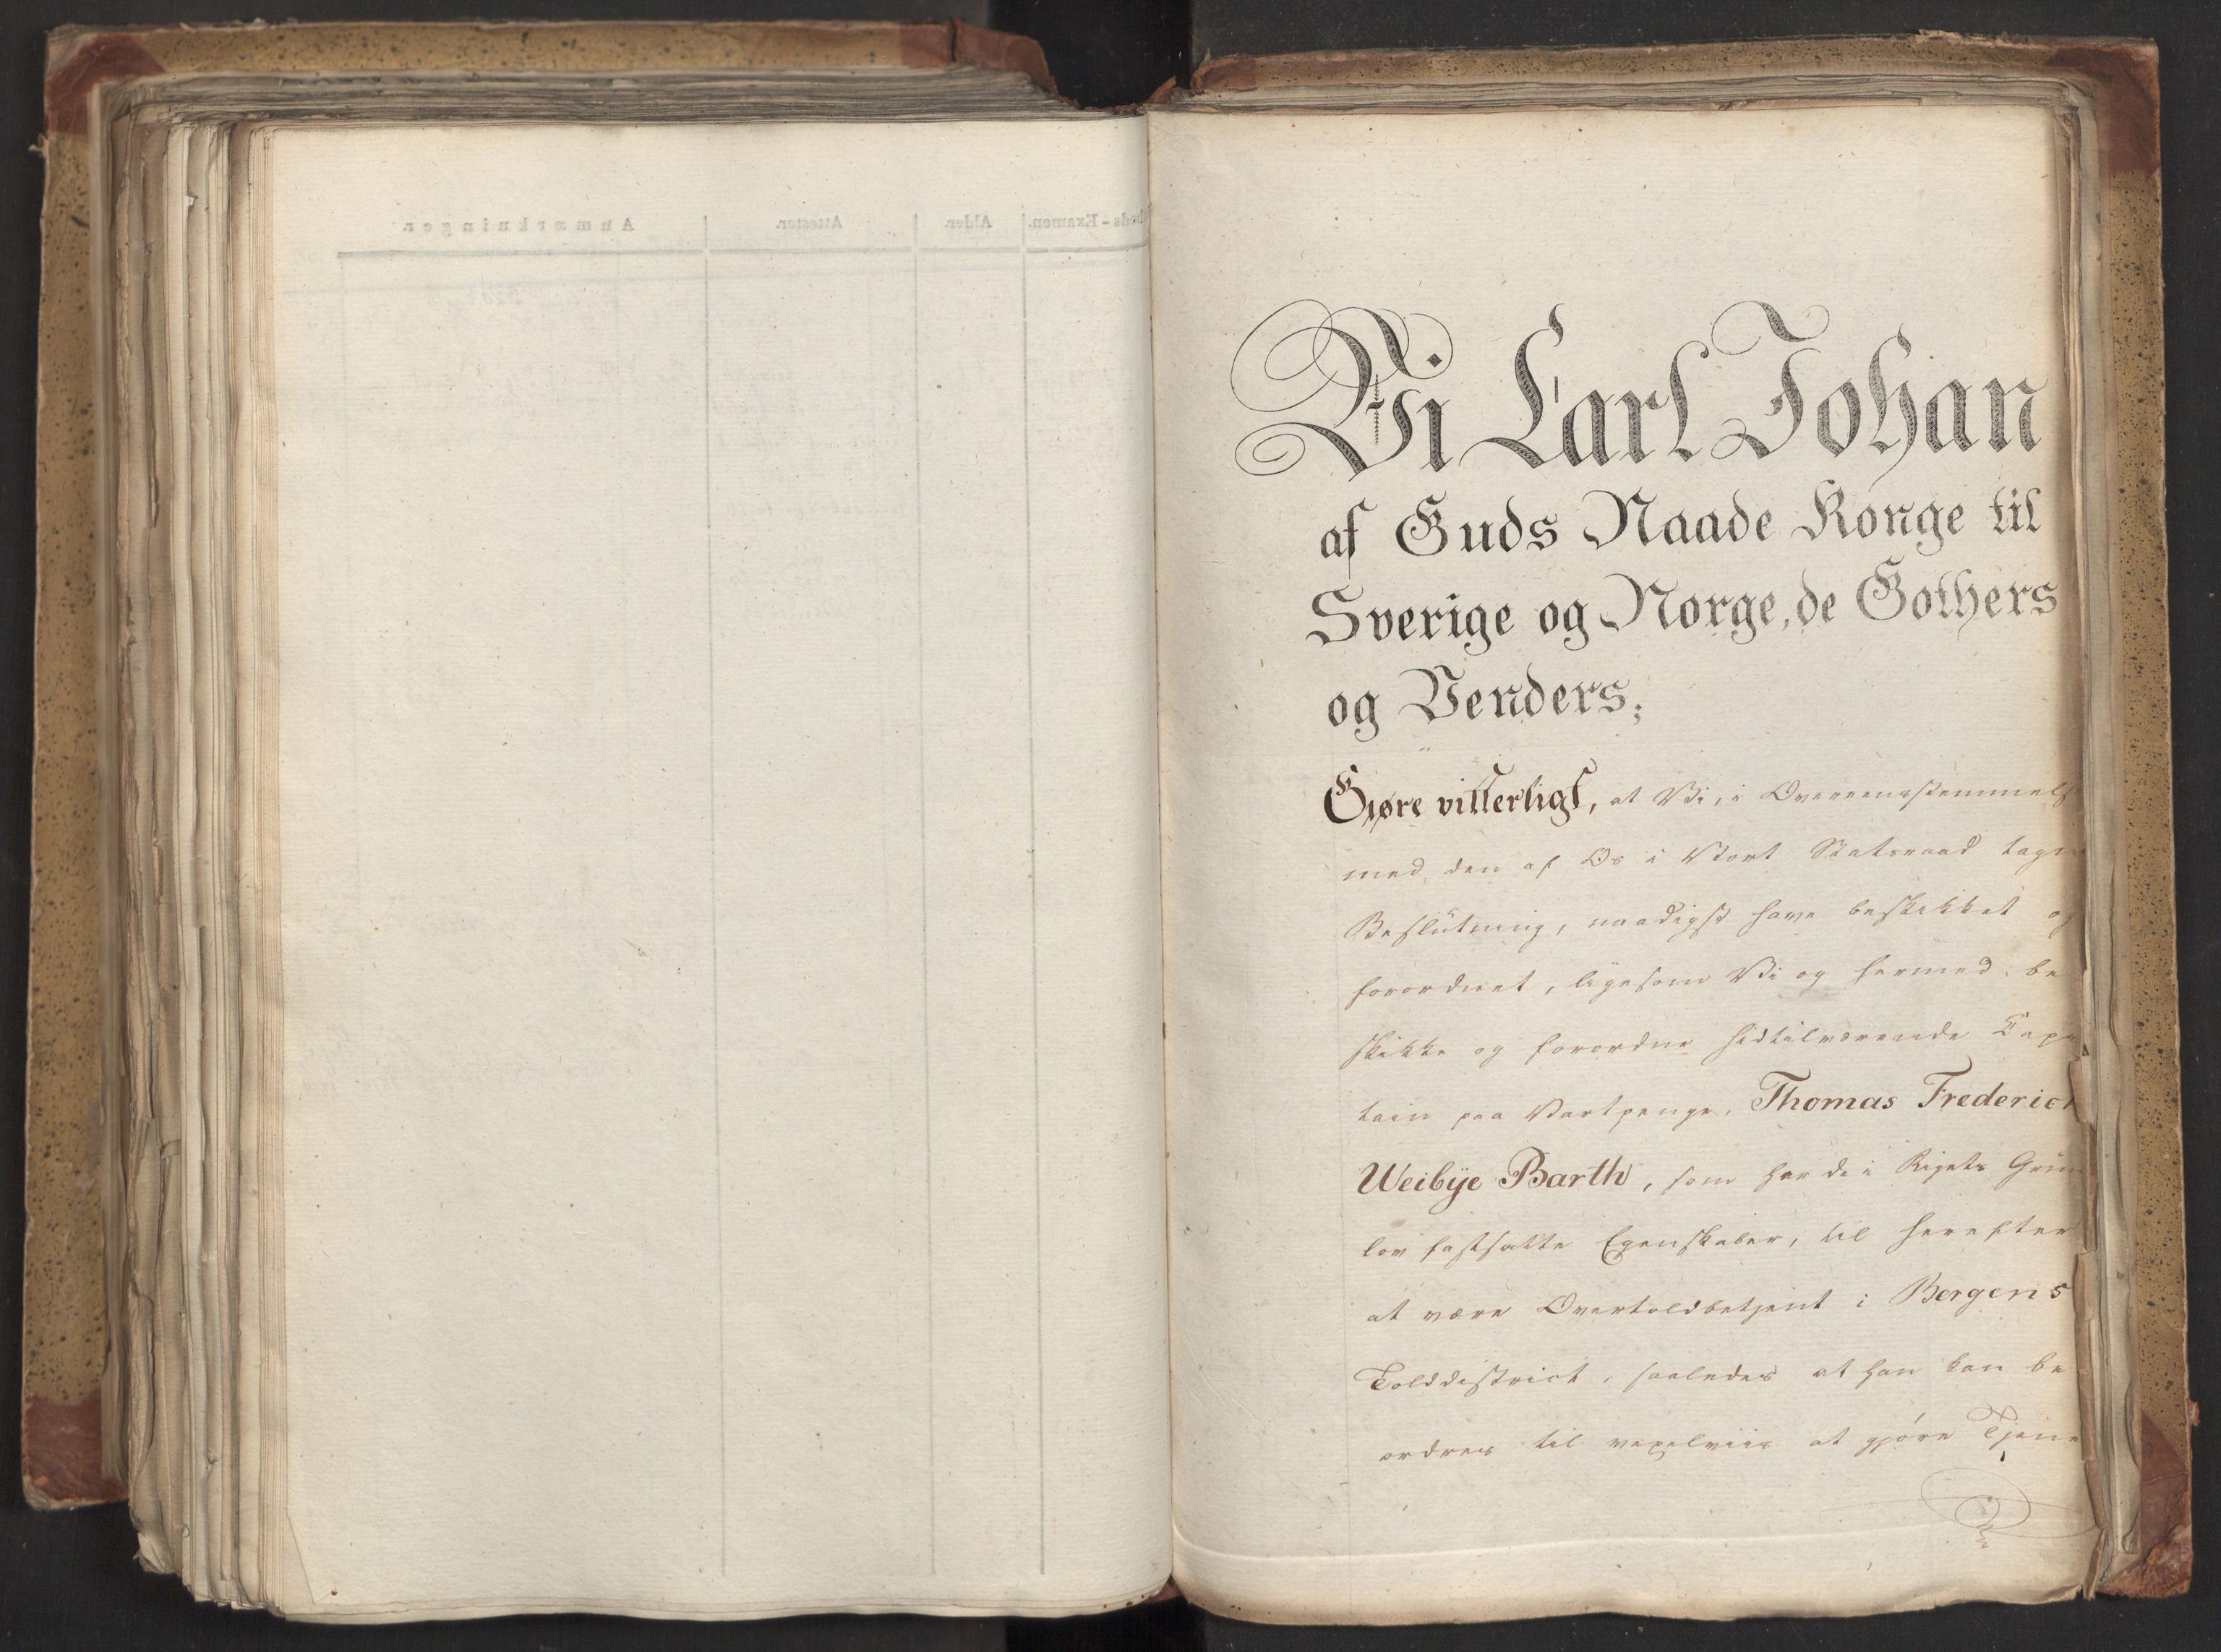 Vi Carl Johan
af Guds Naade Konge til
Sverige og Norge, de Gothers
og Venders;
Gjøre vitterligt, at Vi, i Overeensstemmels
med den af Os i Vort Statsraad tagn
Beslutning, naadigst have beskikket og
forordnet, ligesom Vi og hermed be
skikke og forordne hidtilværende Cap
tain paa Vartpenge, Thomas Frederich
Weibÿe Barth, som har de i Rigets Grun
lov fastsatte Egenskaber, til herefter
at være Overtoldbetjent i Bergens
Tolddistrict, saaledes at han kan be
ordres til vexelviis at gjøre Tjene